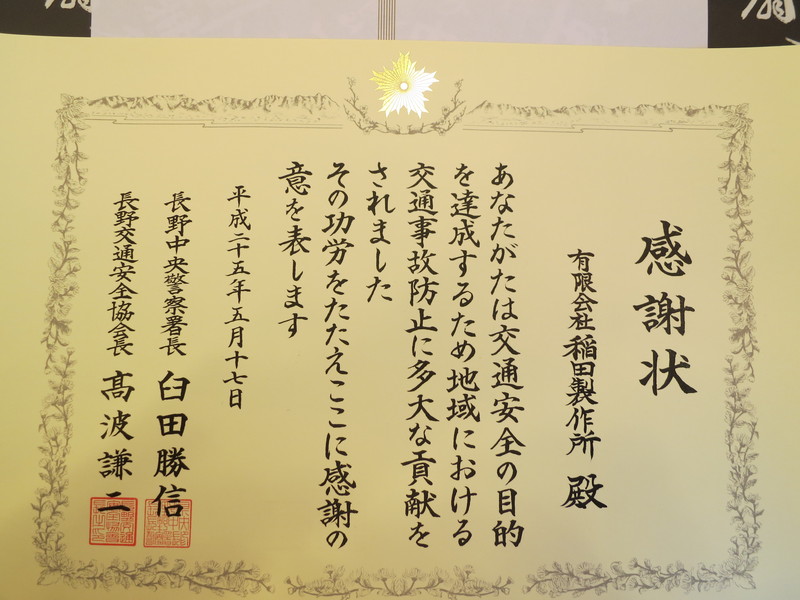 感謝状
有限会社稲田製作所 殿
あなたがたは交通安全の目的
を達成するため地域における
交通事故防止に多大な貢献を
されました
その功労をたたえここに感謝の
意を表します
平成二十五年五月十七日
長野中央警察署長 臼田勝信
長野交通安全協会長 髙波謙二